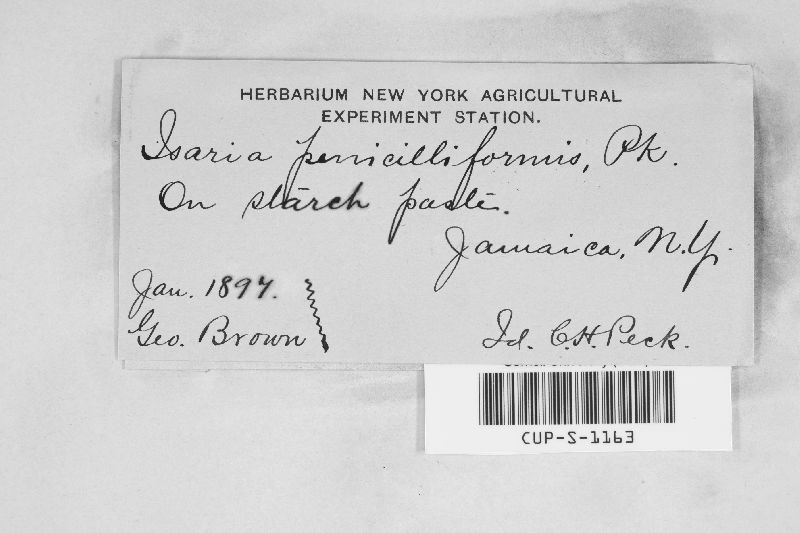 HERBARIUM NEW YORK AGRICULTURAL
EXPERIMENT STATION.
Isaria penicilliformis, Pk.
On starch paste.
Jamaica, N.Y.
Jan. 1897.
Geo. Brown
Id. C.H. Peck.
CUP-S-1163